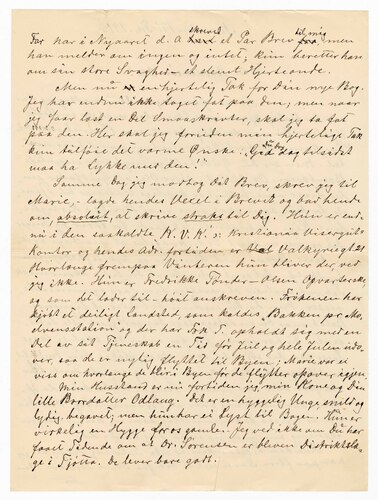 Far har i Nyaaret d. A skrevet et Par Brev til mig, men
han melder om ingen og intet, kun beretter han
om sin store Svaghed - et slemt Hjerteonde.
Men nu en hjertelig Tak for Din nye Bog.
Jeg har endnu ikke taget fat paa den; men naar
jeg faar læst en Del Smaaskrævet, skal jeg ta fat
paa den. Her skal jeg foruden min hjertelige Tak
kun tilføie det varme Ønske: "Gid Du tilsidst
maa ha Lykke med den!"
Samme Dag jeg modtog Dit Brev, skrev jeg til
Marie, - lagde hendes Vexel i Brevet og bad hende
om, absolut, at skrive straks til Dig. Hun er end-
nu i den saakaldte K. V. K. ɔ: Kristiania Visergut
Kontor og hendes Adr. fortiden er Valkyriegt 21
Hvorlænge fremover Vinteren hun bliver der, ved
jeg ikke. Hun er Fredrikke Tønder-Olsen Opvarterske,
og som det lader til - høit anskreven. Frøkenen har
kjøbt et deiligt Landsted, som kaldes Bakken pr.
elvens station og der har Frk T. opholdt sig med en
Del av sit Tjeneskab en Tid før Jul og hele Julen ud-
over, saa de er nylig flyttet til Byen; Marie var ei
viss om hvorlænge de blir i Byen før de flytter opover igjen.
Min Husstand er nu fortiden jeg min Kone og Din
lille Brordatter Odlaug. Det er en hyggelig Unge snild og
lydig, begavet; men hun har ei Lyst til Bogen. Hun er
virkelig en Hygge for os gamle. Jeg ved ikke om Du har
faaet Tidende om at Dr. Sørensen er bleven Distriktslæ-
ge i Tjøtta. De lever bare godt.